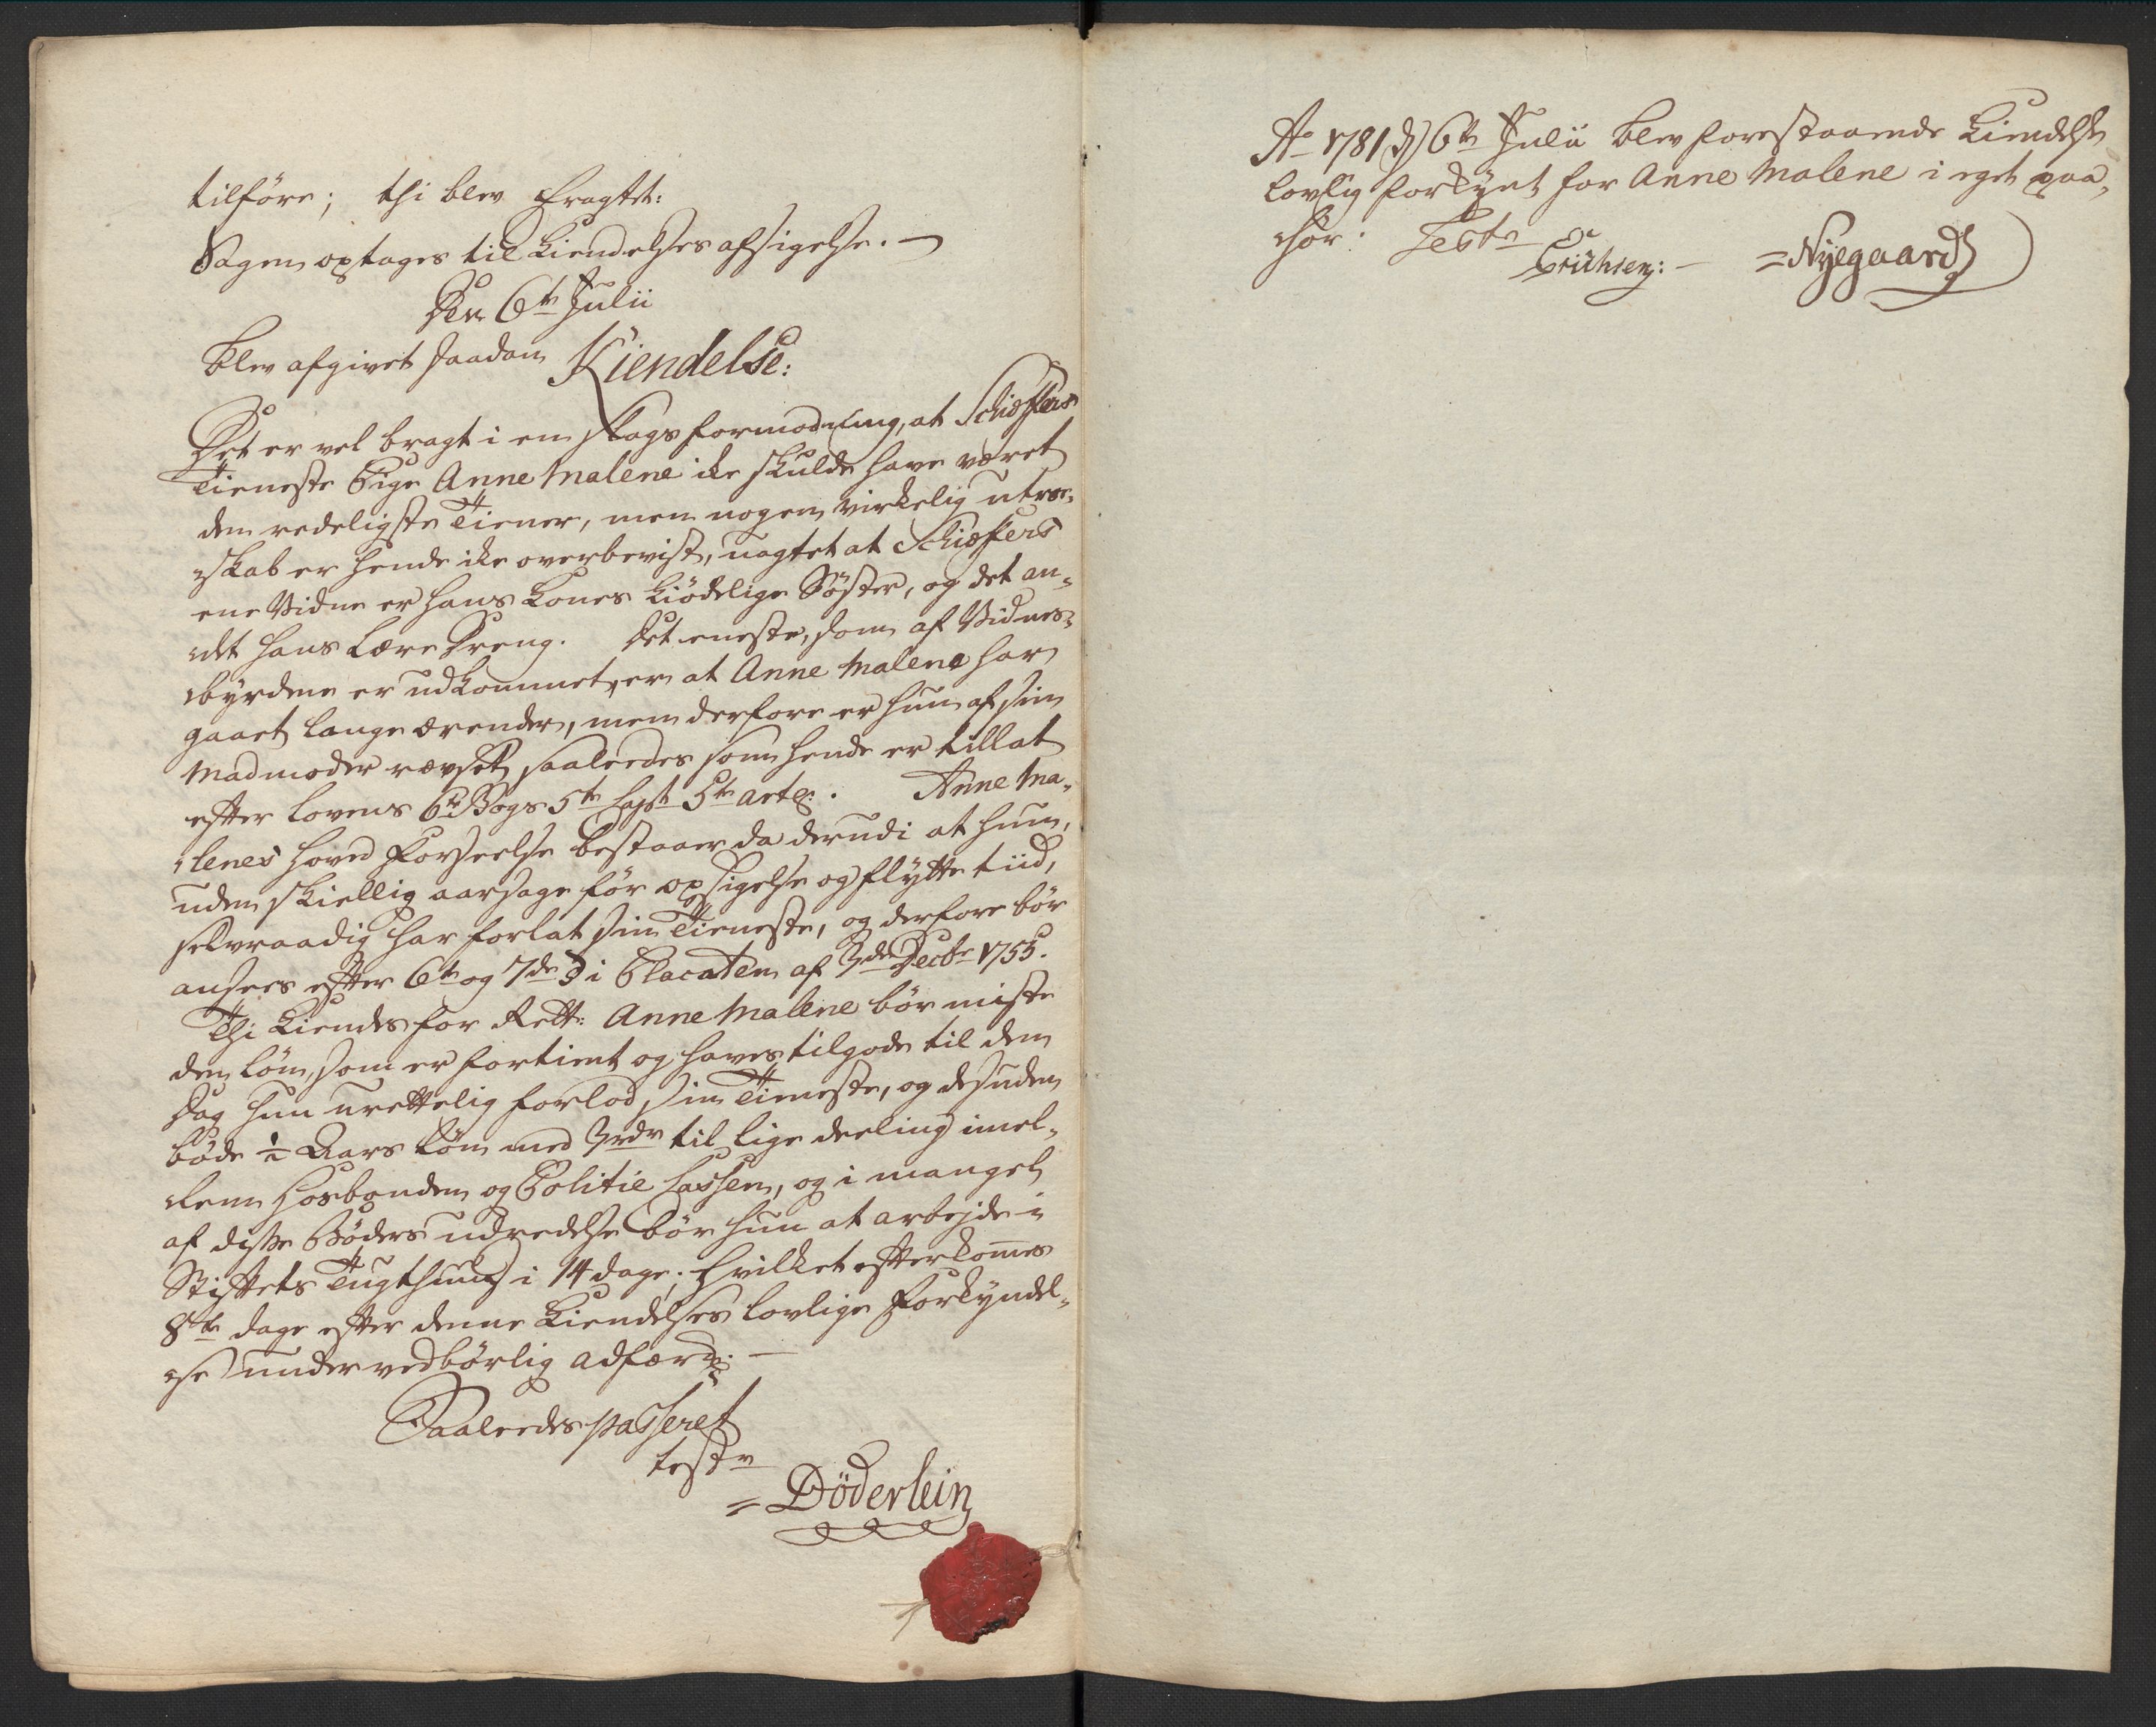 tilföre; thi blev Eragtet:
Sagen optages til Kiendelses afsigelse. —
Den 6te Julii
blev afgivet saadan Kiendelse:
Det er vel bragt i en slags formodning, at Schiøfflers
Tieneste Pige Anne Malene ike skulde have været
den redeligste Tiener, men nogen virkelig utroe-
skab er hende ike overbeviist, uagtet at Schiøfflers
ene Vidne er hans Kones kiödelige Söster, og det an-
det hans Lære Dreng. Det eneste, som af Vidnes-
byrdene er udkommet, er at Anne Malene har
gaaet lange ærender, men derfore er hun af sin
Madmoder revset, saaledes som hende er tillat
efter Lovens 6te Bogs 5te Capt 5te Artl. Anne Ma-
lenes hoved Forseelse bestaaer da derudi at hun,
uden skiellig aarsage för opsigelse og flytte tiid,
selvraadig har forlat sin Tieneste, og derfore bör
ansees efter 6te og 7de § i Placaten af 3de Decbr 1755.
Thi kiendes for Rett: Anne Malene bör miste
den lön, som er fortient og haves tilgode til den
Dag hun urettelig forlod sin Tieneste, og desuden
böde ½ Aars lön med 3 rdr til lige deeling imel-
lem Hosbonden og Politie Cassen, og i mangel
af disse Böders udredelse bör hun at arbejde i
Stiftets Tugthuus i 14 dage; hvilket efterkom̄es
8te dage efter denne Kiendelses lovlige Forkyndel-
se under vedbörlig adfærd. —
Saaledes passeret
test
= Döderlein
Ao 1781 d 6te Julii blev forestaaende Kiendelse
lovlig forkynt for Anne Malene i eget paa-
hör: Test
Erichsen: — = Nyegaard